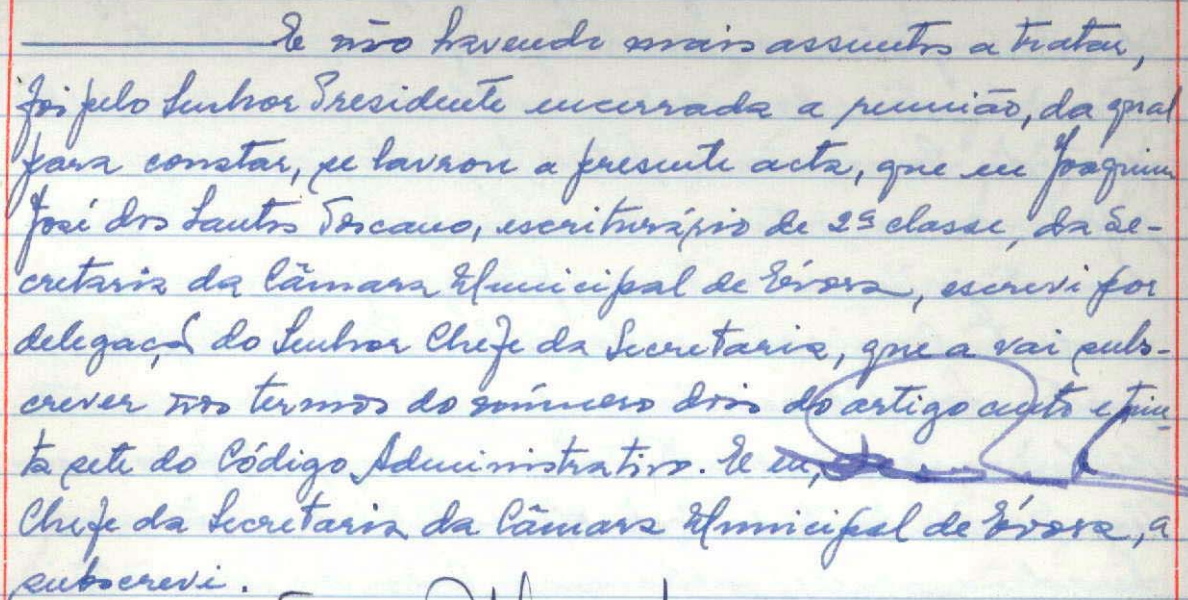 E não havendo mais assuntos a tratar,
foi pelo Senhor Presidente encerrada a reunião, da qual
para constar, se lavrou a presente acta, que eu Joaquim
José dos Santos Toscano, escriturário de 2ª classe, da Se-
cretaria da Câmara Municipal de Évora, escrevi por
delegação do Senhor Chefe da Secretaria, que a vai subs-
crever nos termos do número dois do artigo cento e trin-
ta sete do Código Administrativo. E eu,
Chefe da Secretaria da Câmara Municipal de Évora, a
subscrevi.